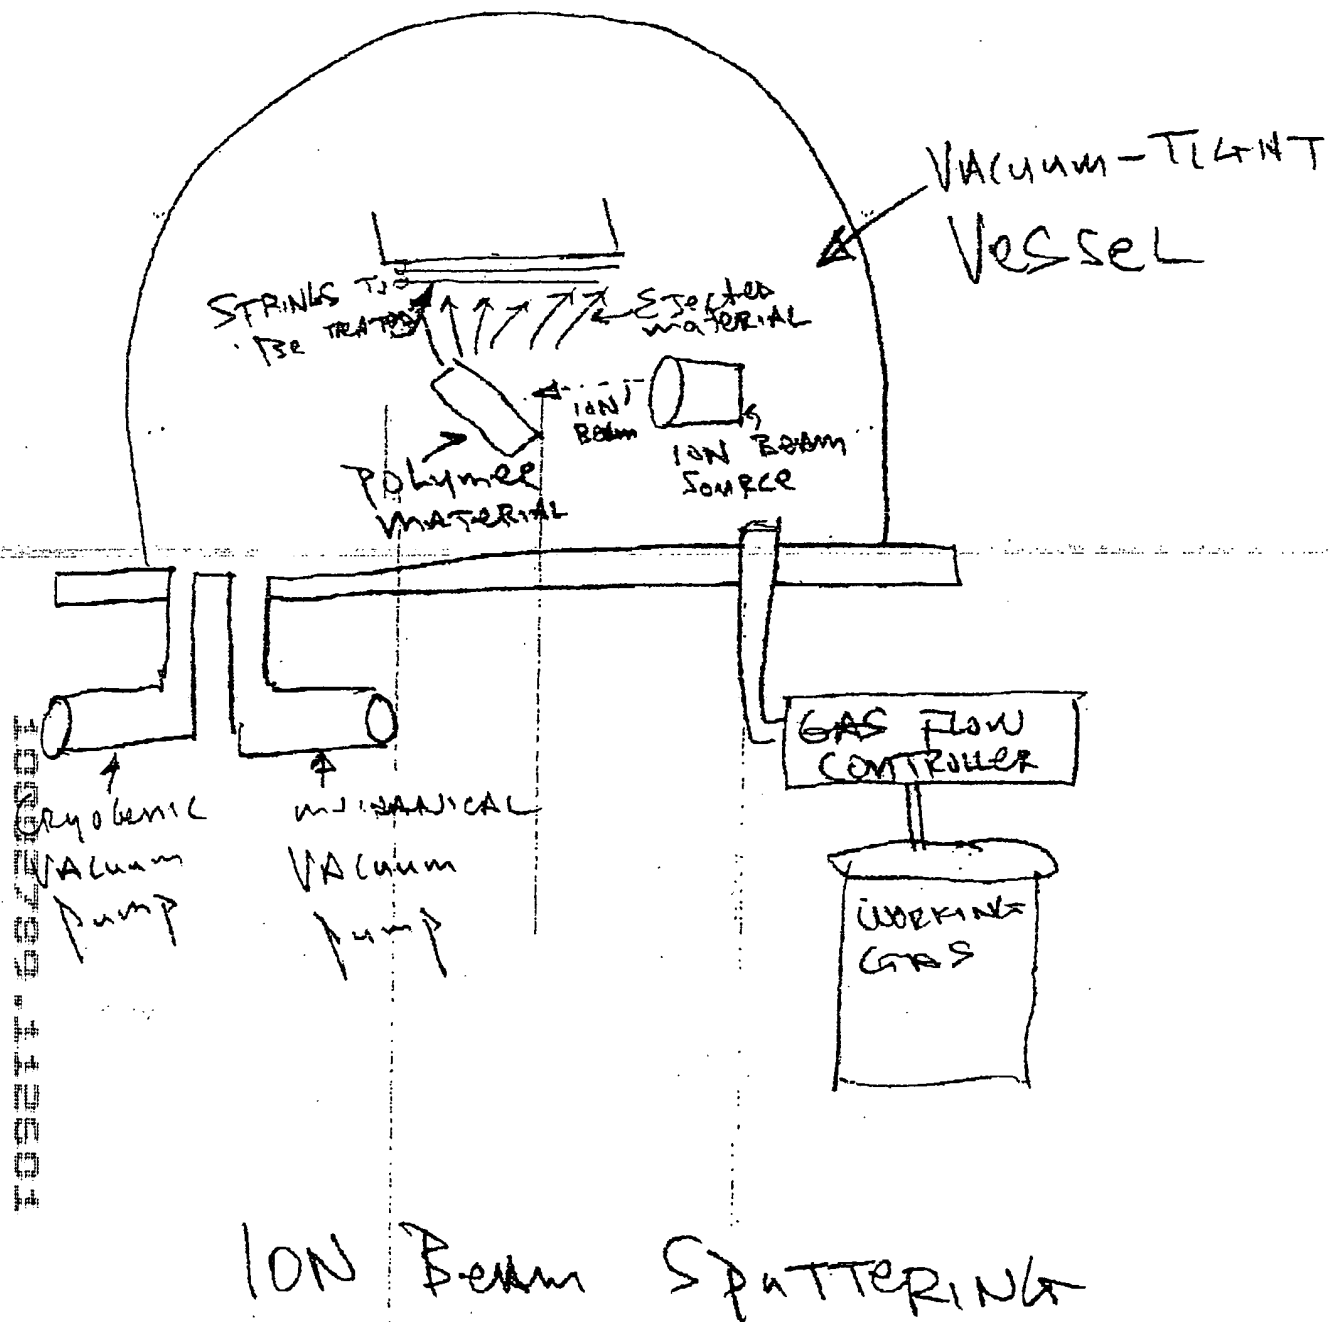 VACUUM-TIGHT
VESSEL
STRINGS TO
BE TREATED
EJECTED
MATERIAL
ION
BEAM
ION BEAM
SOURCE
POLYMER
MATERIAL
GAS FLOW
CONTROLLER
CRYOGENIC
VACUUM
PUMP
VACUUM
PUMP
WORKING
GAS
ION BEAM SPUTTERING